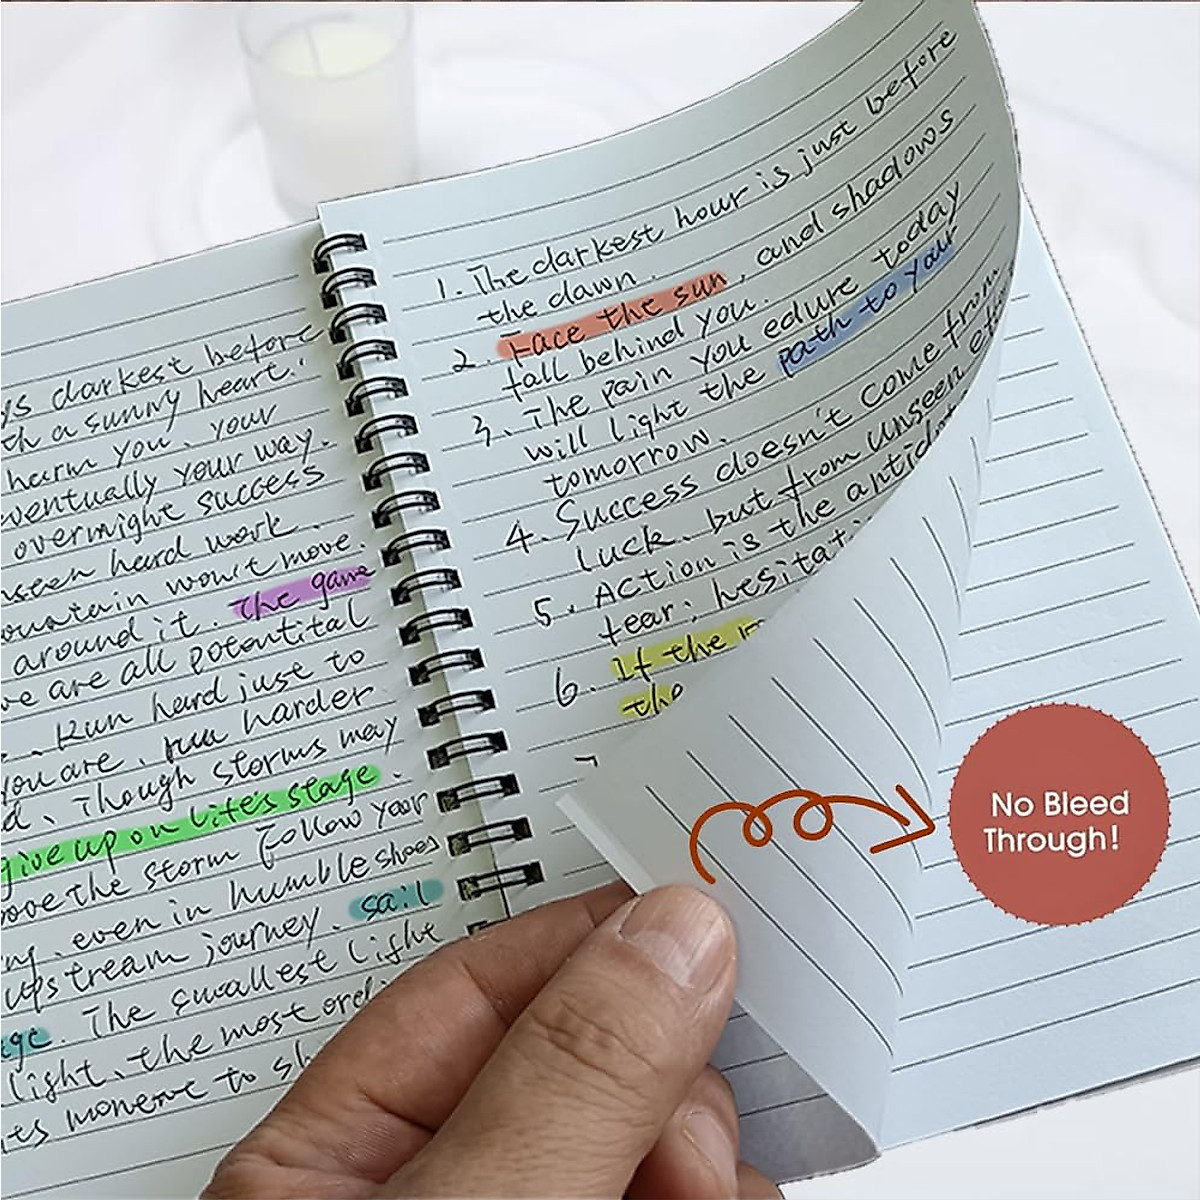 ys darkest before
th a sunny heart.
harm you. your
ventually your way.
overmight success
nseen hard work.
ountain won't move.
around it. The game
we are all potentital
. Run hard just to
you are, run harder
d. Though storms may
give up on Lite's stage.
bove the storm Follow your
ng. even in humble shoes
upstream journey. sail
age. The smallest light
light, the most ordi
tes monent to sh
1. The darkest hour is just before
the dawn.
2. Face the sun, and shadows
fall behind you.
3. The pain you edure today
will light the path to your
tomorrow.
4. Success doesn't come from
luck. but from unseen effor
5. Action is the antido
fear; hesitat
6. If the
the
7
No Bleed
Through!